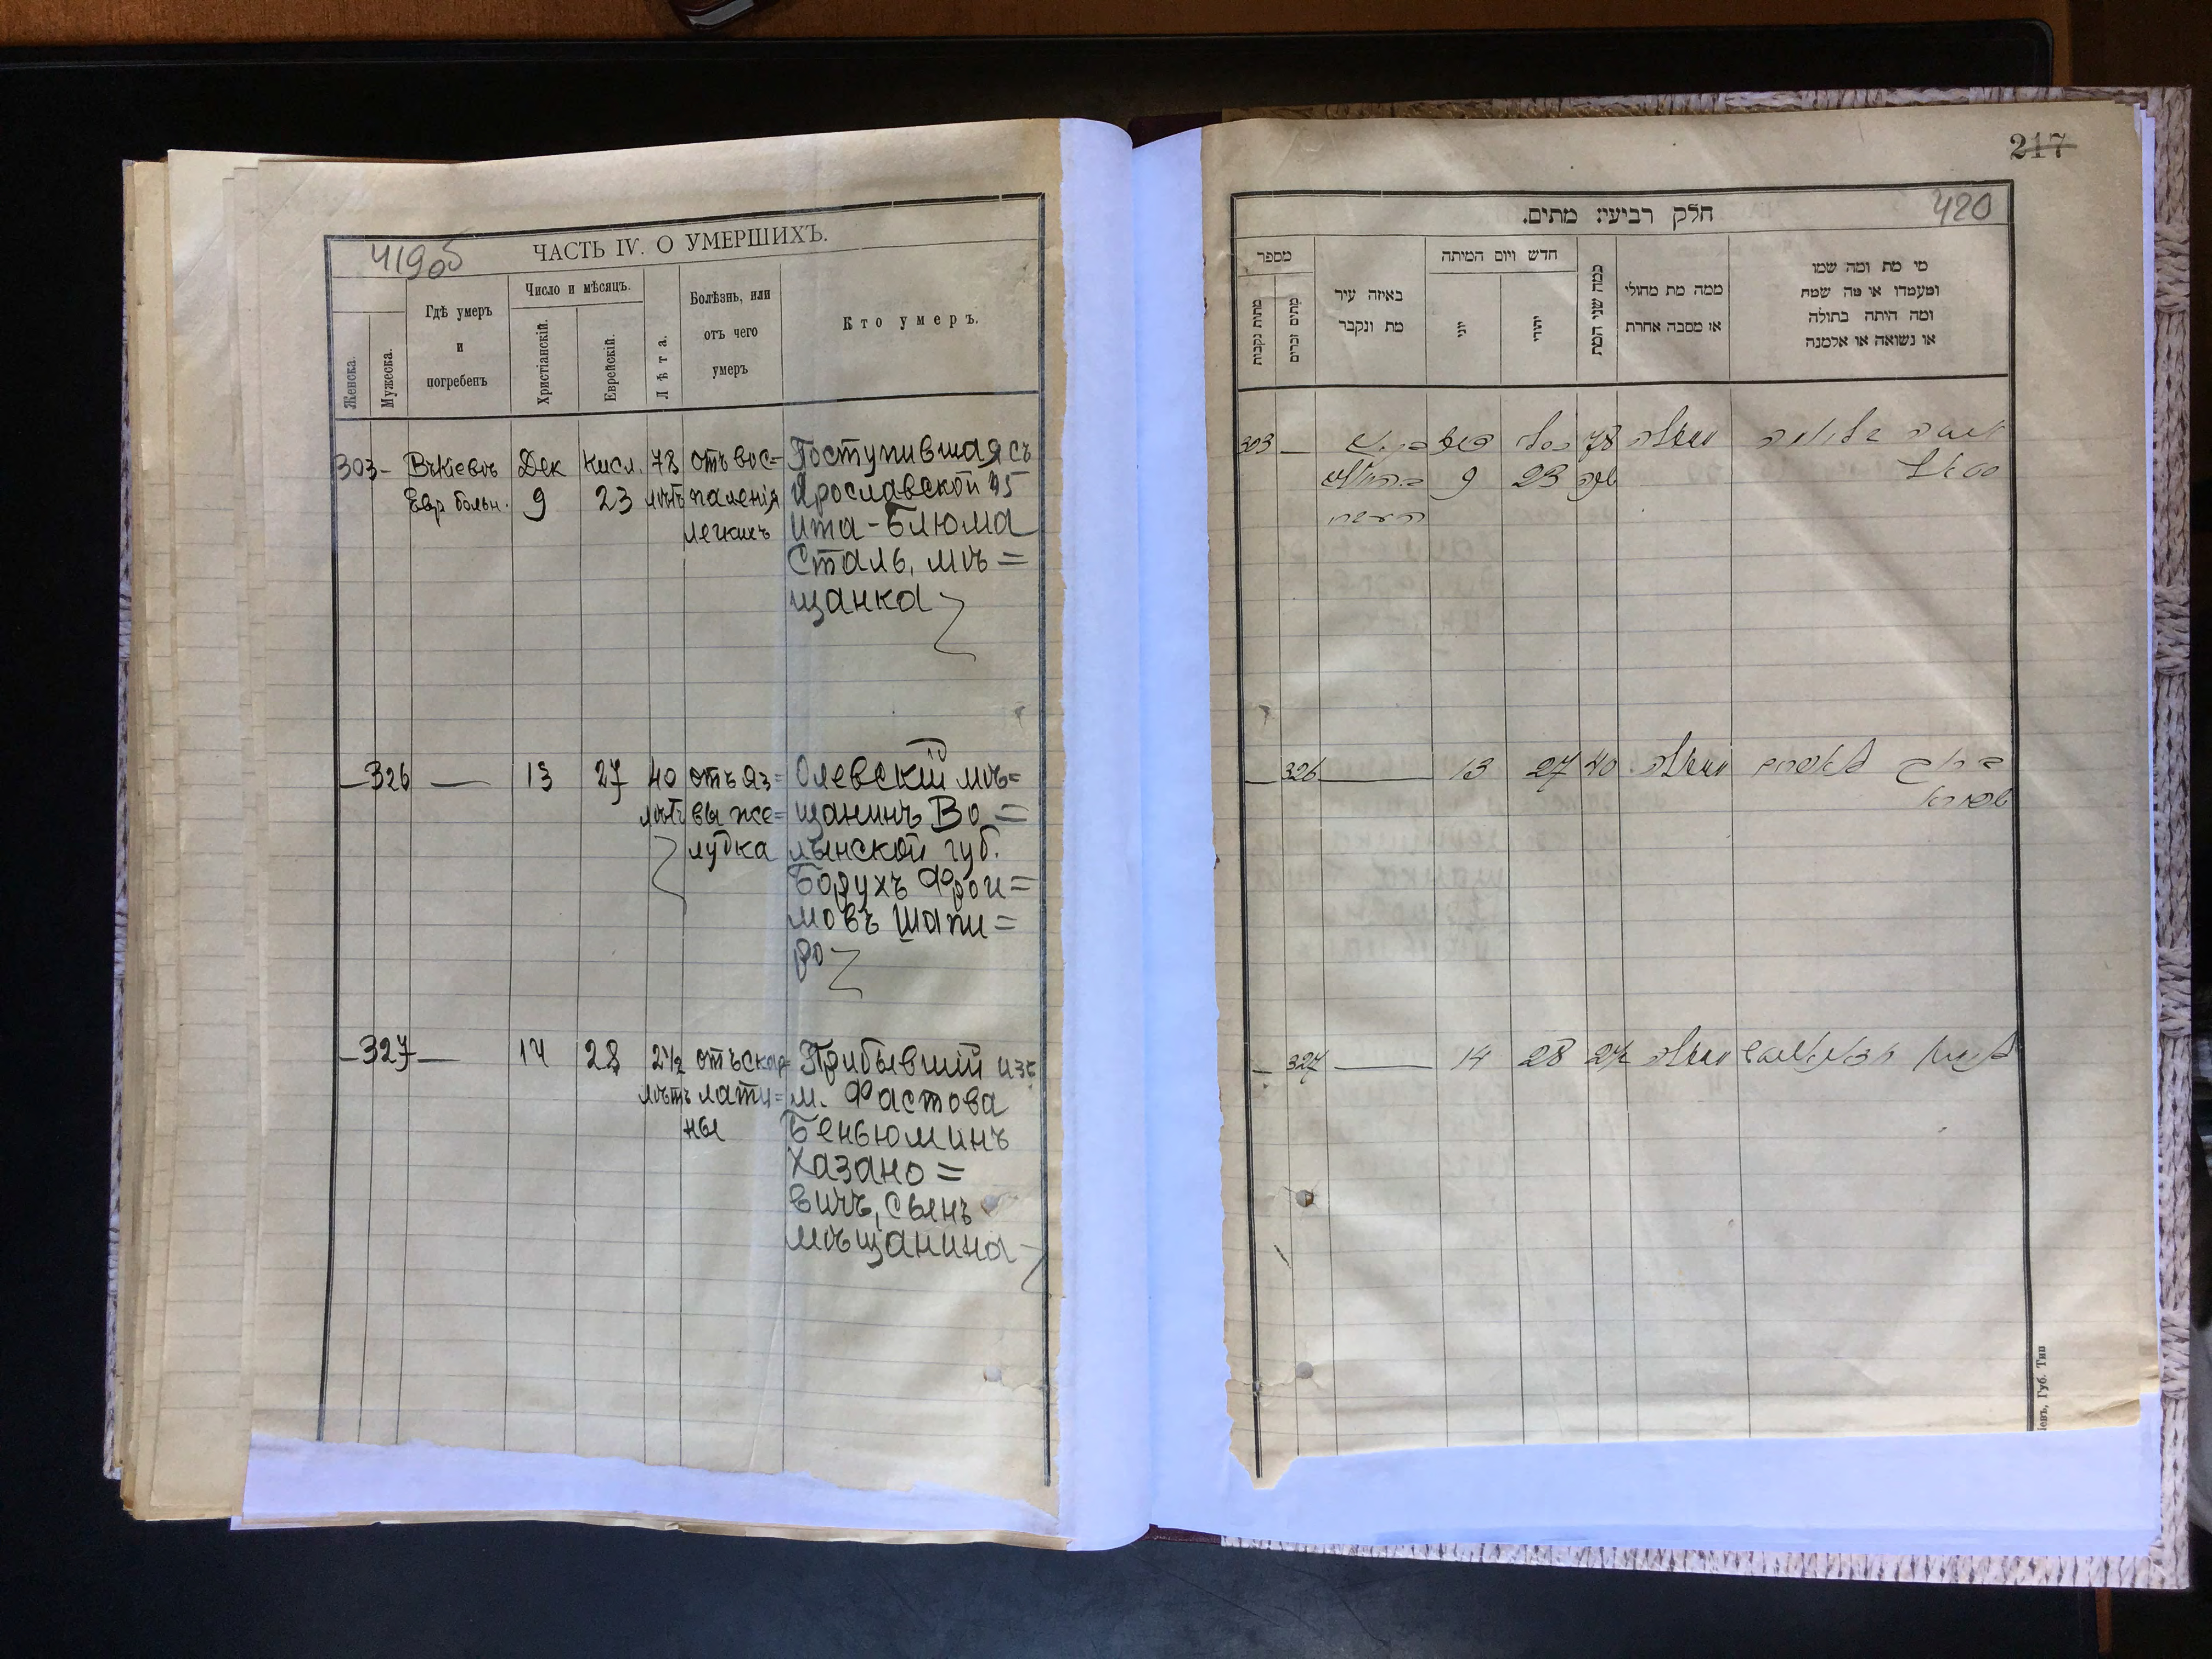 419об
ЧАСТЬ IV. О УМЕРШИХЪ.
Женска.
Мужеска.
Гдѣ умеръ
и
погребенъ
Число и мѣсяцъ.
Христіанскій.
Еврейскій.
Лѣта.
Болѣзнь, или
отъ чего
умеръ
Кто умеръ.
303 - Въ Кіевѣ Дек Кисл. 78 отъ вос= Поступившая съ
Евр больн. 9 23 лѣтъ паленія Ярославской 45
легкихъ Ита-Блюма
Сталь, мѣ=
щанка
— 326 — 13 27 40 отъ яз= Олевскій мѣ=
лѣтъ вы же= щанинъ Во=
лудка лынской губ.
Борухъ Фрои=
мовъ Шапи=
ро
— 327 — 14 28 2½ отъ скар= Прибывшій изъ
лѣтъ лати= м. Фастова
ны Беньюминъ
Хазано=
вичъ, сынъ
мѣщанина
217
420
חלק רביעי: מתים.
מספר
מתות נקבות
מתים זכרים
באיזה עיר
מת ונקבר
חדש ויום המיתה
יוני
יהודי
כמה שני המת
ממה מת מחולי
או מסבה אחרת
מי מת ומה שמו
ומעמדו או מה שמה
ומה היתה בתולה
או נשואה או אלמנה
303 — 78
9 23
— 326 — 13 27 40
— 327 — 14 28 2½
іевъ, Губ. Тип